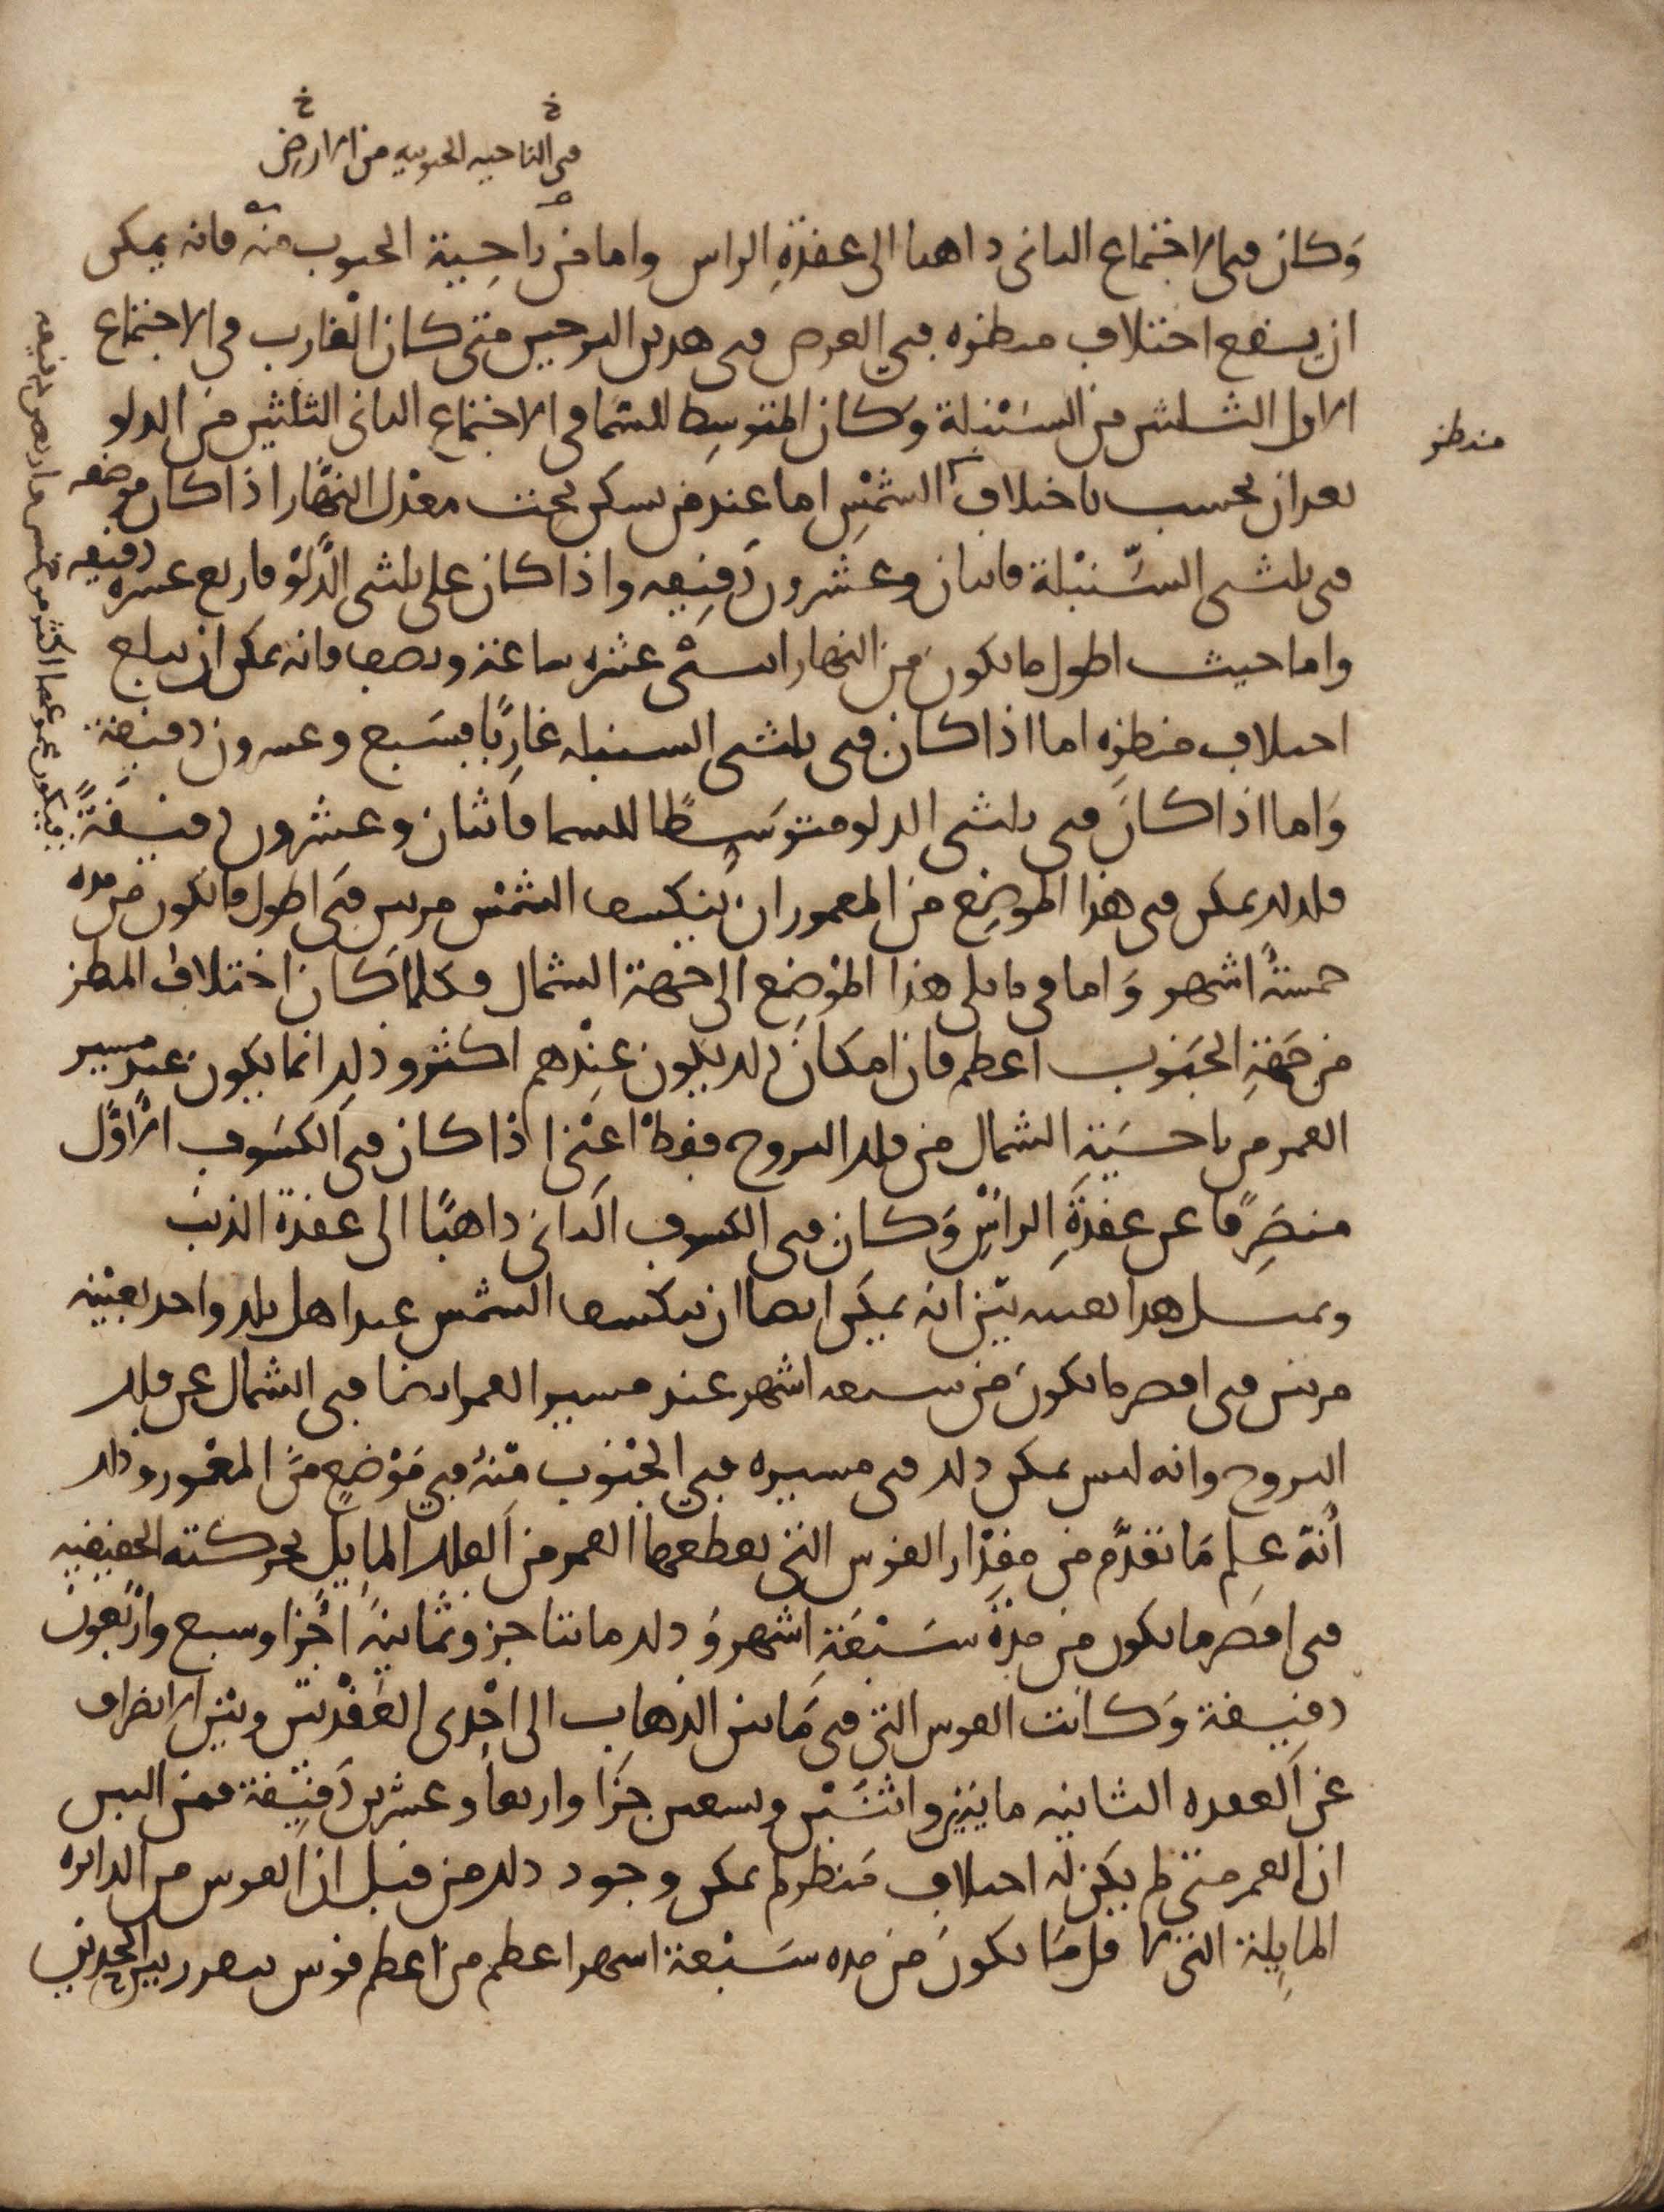 في الناحيه الجنوبيه من الارض
وكان في الاجتماع الثاني ذاهبا الى عقدة الراس واما في ناحية الجنوب منه فانه يمكن
ان يقع اختلاف منظره في العرض في هذين البرجين متى كان الغارب في الاجتماع
الاول الثلثين من السنبلة وكان المتوسط للسما في الاجتماع الثاني الثلثين من الدلو
بعد ان يحسب باختلاف الشمس اما عند من يسكن تحت معدل النهار اذا كان موضعه
في ثلثي السنبلة فاثنان وعشرون دقيقه واذا كان على ثلثي الدلو فاربع عشره دقيقه
واما حيث اطول ما يكون من النهار اثنتى عشره ساعة ونصف فانه يمكن ان يبلغ
اختلاف منظره اما اذا كان في ثلثي السنبله غاربا فسبع وعشرون دقيقة
واما اذا كان في ثلثي الدلو متوسطا للسما فاثنان وعشرون دقيقة
فيكون مجموعهما اكثر من خمس واربعين دقيقه
منظر
فلذلك يمكن في هذا الموضع من المعمور ان ينكسف الشمس مرتين في اطول ما يكون من مده
خمسة اشهر واما في ما يلي هذا الموضع الى جهة الشمال فكلما كان اختلاف المنظر
من جهة الجنوب اعظم فان امكان ذلك يكون عندهم اكثر وذلك انما يكون عند مسير
القمر من ناحية الشمال من فلك البروج فقط اعني اذا كان في الكسوف الاول
منصرفا عن عقدة الراس وكان في الكسوف الثاني ذاهبا الى عقدة الذنب
وبمثل هذا بعينه تبين انه يمكن ايضا ان ينكسف الشمس عند اهل بلد واحد بعينه
مرتين في اقصر ما يكون من سبعه اشهر عند مسير القمر ايضا في الشمال عن فلك
البروج وانه ليس يمكن ذلك في مسيره في الجنوب منه في موضع من المعمور وذلك
انه علم ما تقدم من مقدار القوس التي يقطعها القمر من الفلك المايل بحركته الحقيقيه
في اقصر ما يكون من مدة سبعة اشهر وذلك مائتا جز وثمانية اجزا وسبع واربعون
دقيقة وكانت القوس التي في ما بين الذهاب الى احدى العقدتين وبين الانصراف
عن العقده الثانيه مايتين واثنتين وتسعين جزا واربعا وعشرين دقيقة فمن البين
ان القمر متى لم يكن له اختلاف منظر لم يمكن وجود ذلك من قبل ان القوس من الدايره
المايلة التي لاقل ما يكون من مده سبعة اشهر اعظم من اعظم قوس بين الحدين